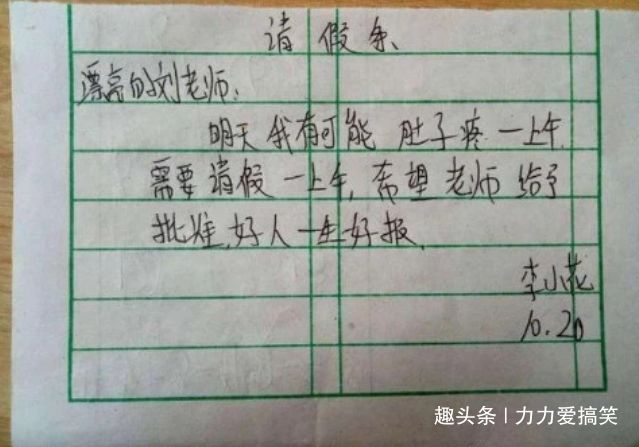 请假条
漂亮的刘老师:
明天我有可能 肚子疼一上午,
需要请假一上午,希望老师给予
批准,好人一生好报.
李小花
10.20
趣头条 | 力力爱搞笑